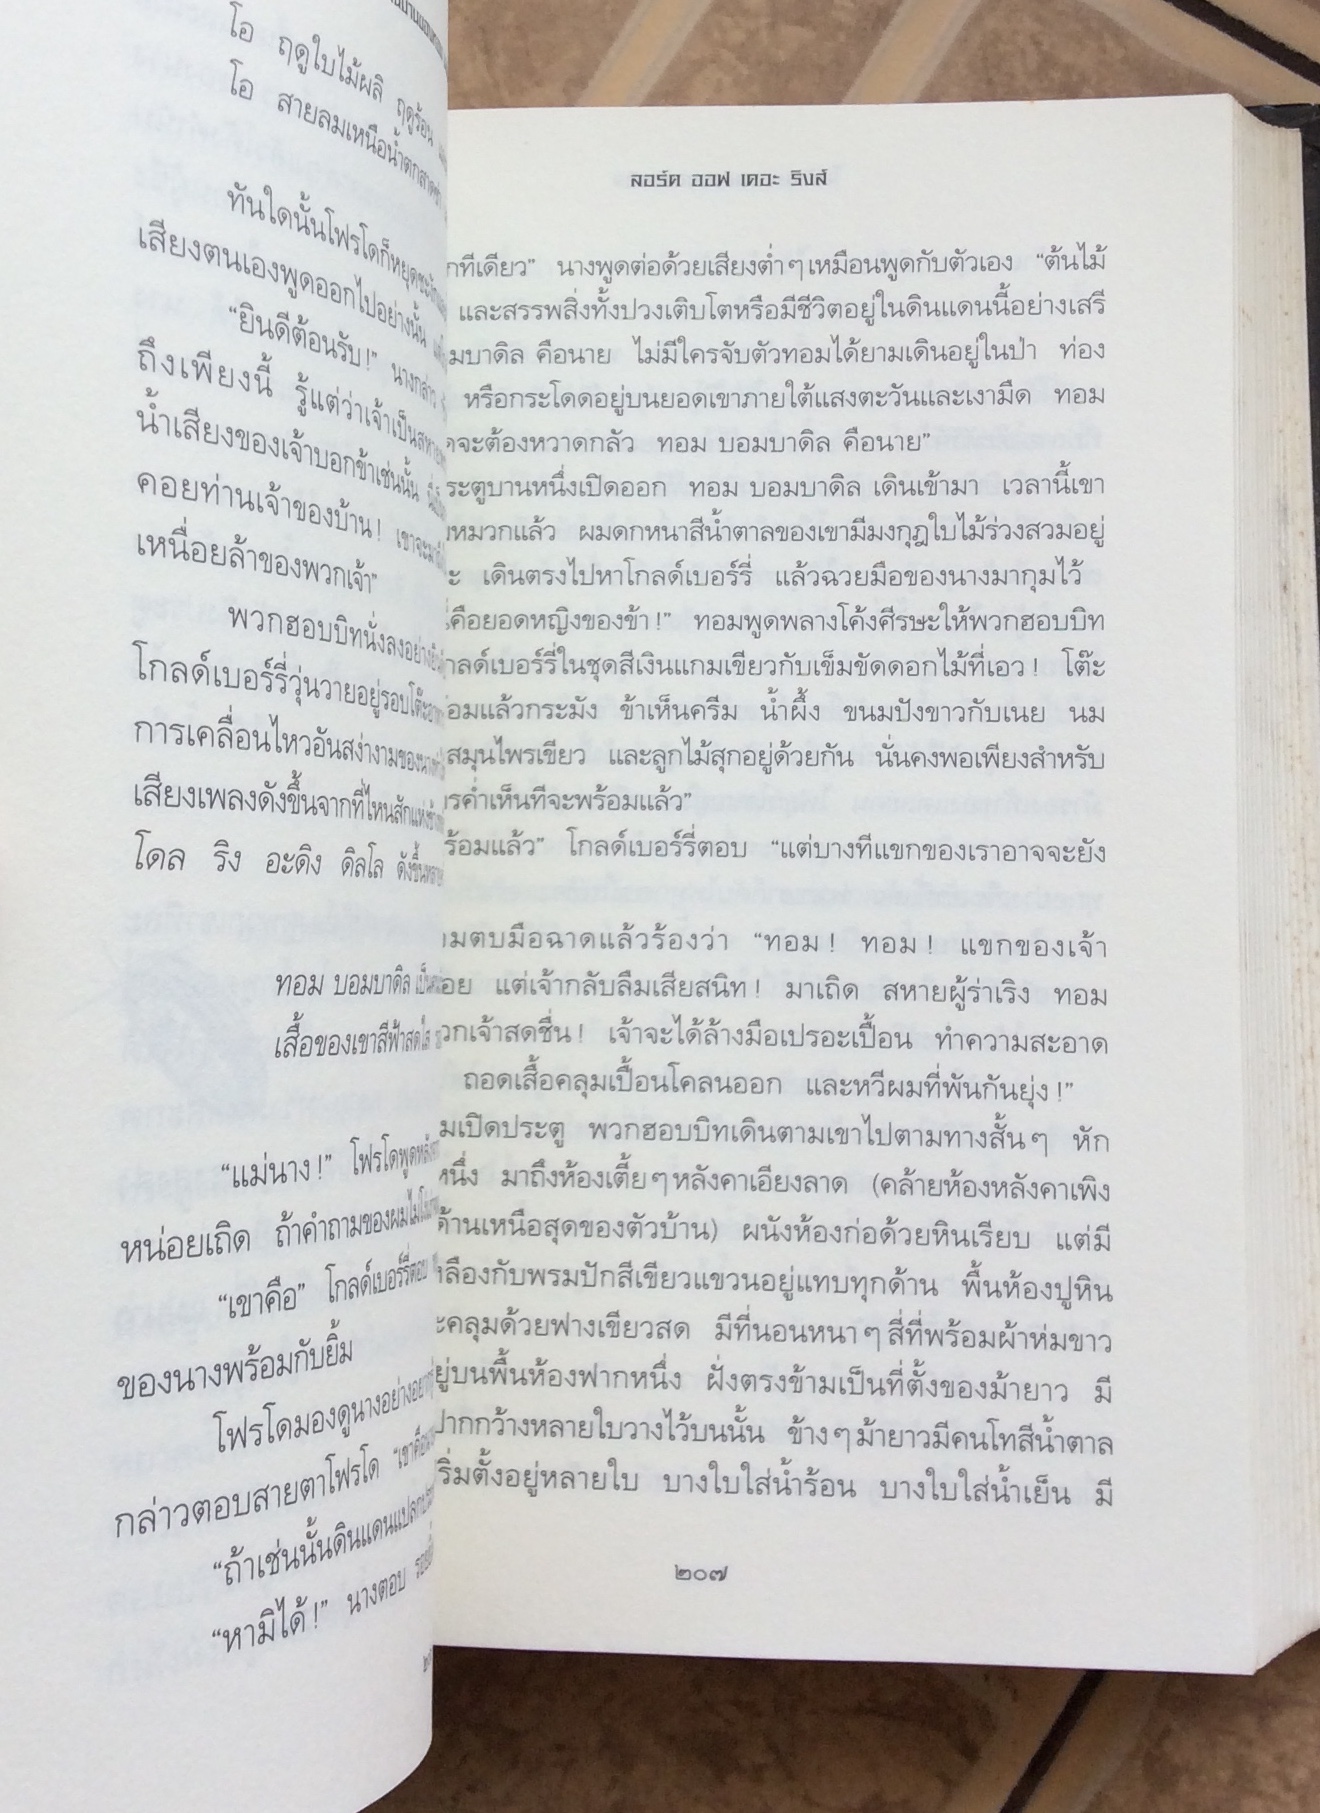 โอ ฤดูใบไม้ผลิ ฤดูร้อน
โอ สายลมเหนือน้ำตก
ทันใดนั้นโฟรโดก็หยุดชะงัก
เสียงตนเองพูดออกไปอย่างนั้น
“ยินดีต้อนรับ!” นางกล่าว
ถึงเพียงนี้ รู้แต่ว่าเจ้าเป็นสหาย
น้ำเสียงของเจ้าบอกข้าเช่นนั้น
คอยท่านเจ้าของบ้าน! เขาจะมา
เหนื่อยล้าของพวกเจ้า”
พวกฮอบบิทนั่งลงอย่าง
โกลด์เบอร์รี่วุ่นวายอยู่รอบโต๊ะ
การเคลื่อนไหวอันสง่างามของนาง
เสียงเพลงดังขึ้นจากที่ไหนสักแห่ง
โดล ริง อะดิง ดิลโล ดังขึ้น
ทอม บอมบาดิล เป็น
เสื้อของเขาสีฟ้าสดใส
“แม่นาง!” โฟรโดพูด
หน่อยเถิด ถ้าคำถามของผมไม่
“เขาคือ” โกลด์เบอร์รี่ตอบ
ของนางพร้อมกับยิ้ม
โฟรโดมองดูนางอย่าง
กล่าวตอบสายตาโฟรโด “เขาคือ
“ถ้าเช่นนั้นดินแดนแปลก
“หามิได้!” นางตอบ
ลอร์ด ออฟ เดอะ ริงส์
ทีเดียว” นางพูดต่อด้วยเสียงต่ำๆ เหมือนพูดกับตัวเอง “ต้นไม้
และสรรพสิ่งทั้งปวงเติบโตหรือมีชีวิตอยู่ในดินแดนนี้อย่างเสรี
มบาดิล คือนาย ไม่มีใครจับตัวทอมได้ยามเดินอยู่ในป่า ท่อง
หรือกระโดดอยู่บนยอดเขาภายใต้แสงตะวันและเงามืด ทอม
จะต้องหวาดกลัว ทอม บอมบาดิล คือนาย”
ระตูบานหนึ่งเปิดออก ทอม บอมบาดิล เดินเข้ามา เวลานี้เขา
หมวกแล้ว ผมดกหนาสีน้ำตาลของเขามีมงกุฎใบไม้ร่วงสวมอยู่
ะ เดินตรงไปหาโกลด์เบอร์รี่ แล้วฉวยมือของนางมากุมไว้
คือยอดหญิงของข้า!” ทอมพูดพลางโค้งศีรษะให้พวกฮอบบิท
กลด์เบอร์รี่ในชุดสีเงินแกมเขียวกับเข็มขัดดอกไม้ที่เอว! โต๊ะ
อมแล้วกระมัง ข้าเห็นครีม น้ำผึ้ง ขนมปังขาวกับเนย นม
สมุนไพรเขียว และลูกไม้สุกอยู่ด้วยกัน นั่นคงพอเพียงสำหรับ
รค่ำเห็นทีจะพร้อมแล้ว”
ร้อมแล้ว” โกลด์เบอร์รี่ตอบ “แต่บางทีแขกของเราอาจจะยัง
มตบมือฉาดแล้วร้องว่า “ทอม! ทอม! แขกของเจ้า
อย แต่เจ้ากลับลืมเสียสนิท! มาเถิด สหายผู้ร่าเริง ทอม
วกเจ้าสดชื่น! เจ้าจะได้ล้างมือเปรอะเปื้อน ทำความสะอาด
ถอดเสื้อคลุมเปื้อนโคลนออก และหวีผมที่พันกันยุ่ง!”
มเปิดประตู พวกฮอบบิทเดินตามเขาไปตามทางสั้นๆ หัก
หนึ่ง มาถึงห้องเตี้ยๆ หลังคาเอียงลาด (คล้ายห้องหลังคาเพิง
ด้านเหนือสุดของตัวบ้าน) ผนังห้องก่อด้วยหินเรียบ แต่มี
หลืองกับพรมปักสีเขียวแขวนอยู่แทบทุกด้าน พื้นห้องปูหิน
ะคลุมด้วยฟางเขียวสด มีที่นอนหนาๆ สี่ที่พร้อมผ้าห่มขาว
ยู่บนพื้นห้องฟากหนึ่ง ฝั่งตรงข้ามเป็นที่ตั้งของม้ายาว มี
ปากกว้างหลายใบวางไว้บนนั้น ข้างๆ ม้ายาวมีคนโทสีน้ำตาล
ริ่มตั้งอยู่หลายใบ บางใบใส่น้ำร้อน บางใบใส่น้ำเย็น มี
๒๐๗